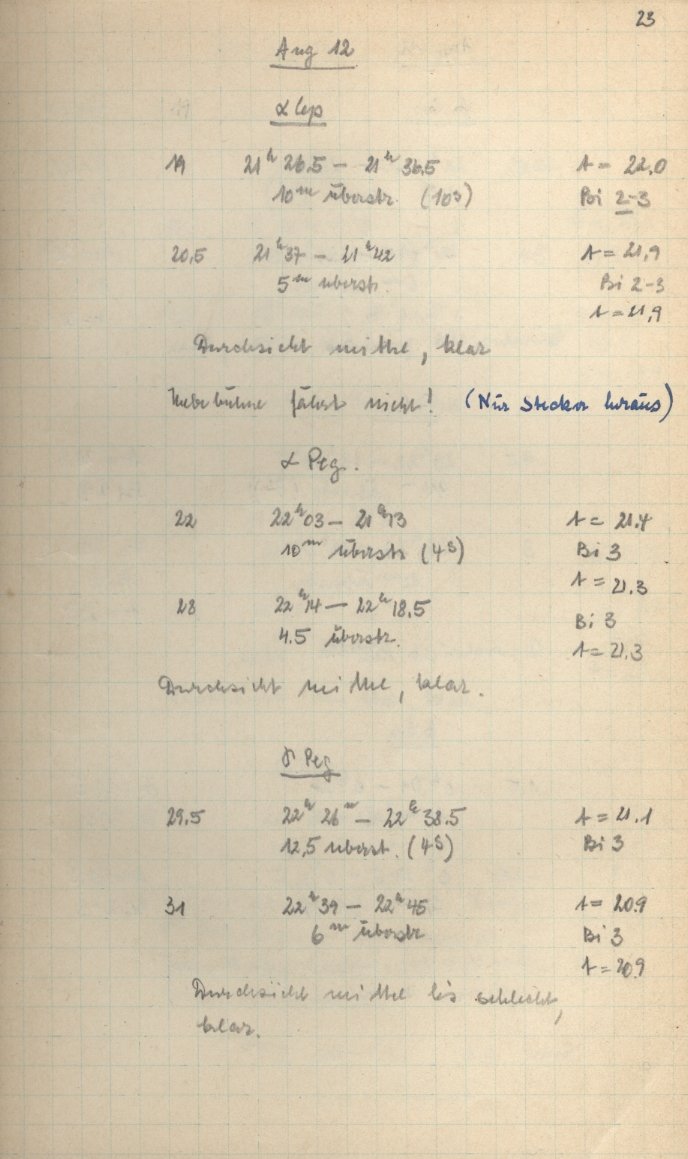 23
Aug 12
α Cep
19 21ʰ 26.5 – 21ʰ 36.5 t = 22.0
10ᵐ überstr. (10s) Bi 2-3
20,5 21ʰ37 – 21ʰ42 t = 21,9
5ᵐ überstr. Bi 2-3
t = 21,9
Durchsicht mittel, klar
Hebebühne fährt nicht! (Nur Stecker heraus)
α Peg.
22 22ʰ03 – 21ʰ13 t = 21.4
10ᵐ überstr (4s) Bi 3
t = 21.3
28 22ʰ14 – 22ʰ18,5 Bi 3
4.5 überstr. t = 21.3
Durchsicht mittel, klar.
γ Peg
29,5 22ʰ 26ᵐ – 22ʰ 38.5 t = 21.1
12,5 überst. (4s) Bi 3
31 22ʰ39 – 22ʰ45 t = 20.9
6ᵐ überstr Bi 3
t = 20.9
Durchsicht mittel bis schlecht,
klar.